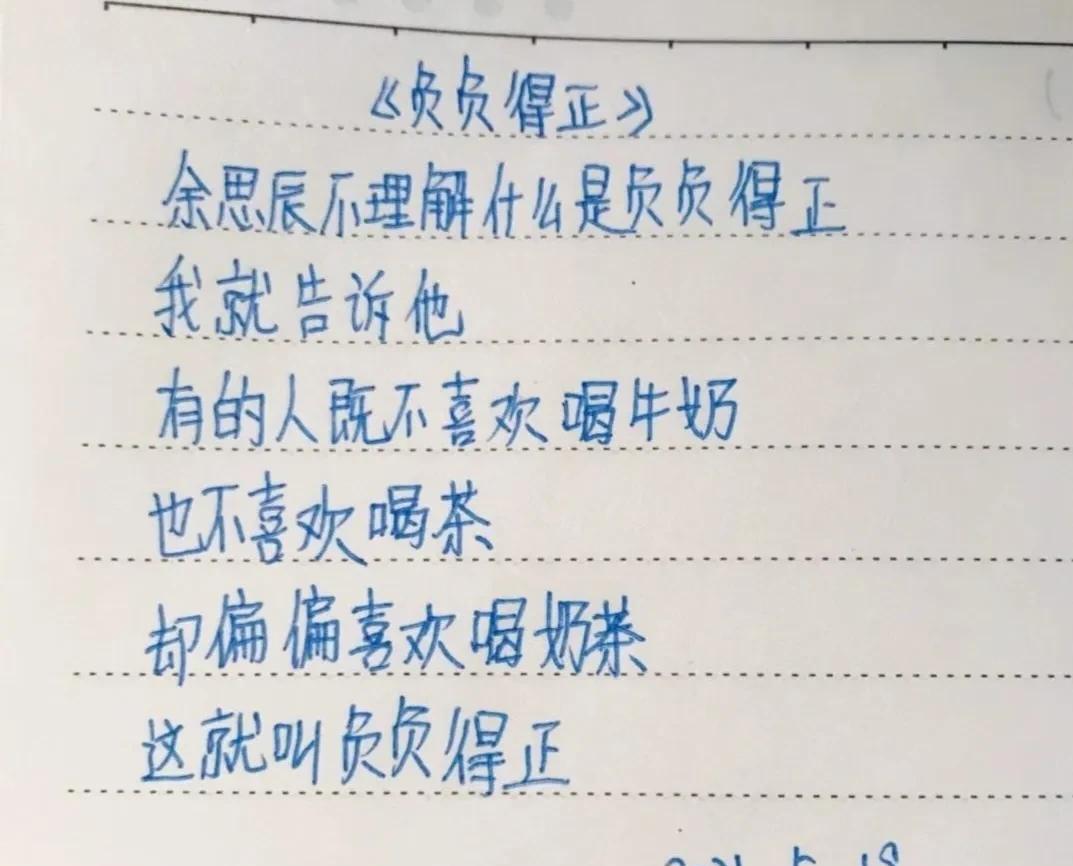 《负负得正》
余思辰不理解什么是负负得正
我就告诉他
有的人既不喜欢喝牛奶
也不喜欢喝茶
却偏偏喜欢喝奶茶
这就叫负负得正